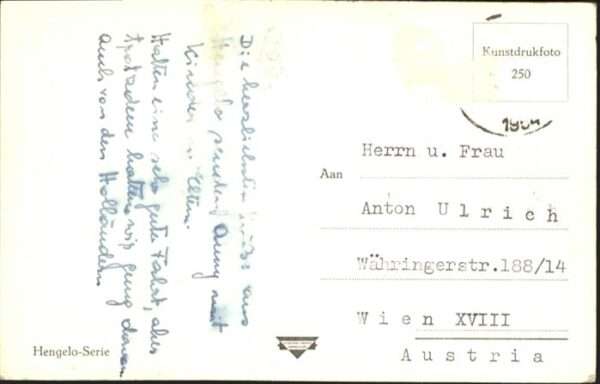 Die herzlichsten Grüße aus
Hengelo senden Anny mit
Kinder u. Eltern.
Hatten eine sehr gute Fahrt, aber
trotzdem hatten wir genug davon
auch von den Holländern
Kunstdrukfoto
250
Herrn u. Frau
Aan
Anton Ulrich
Währingerstr.188/14
Wien XVIII
Austria
Hengelo-Serie